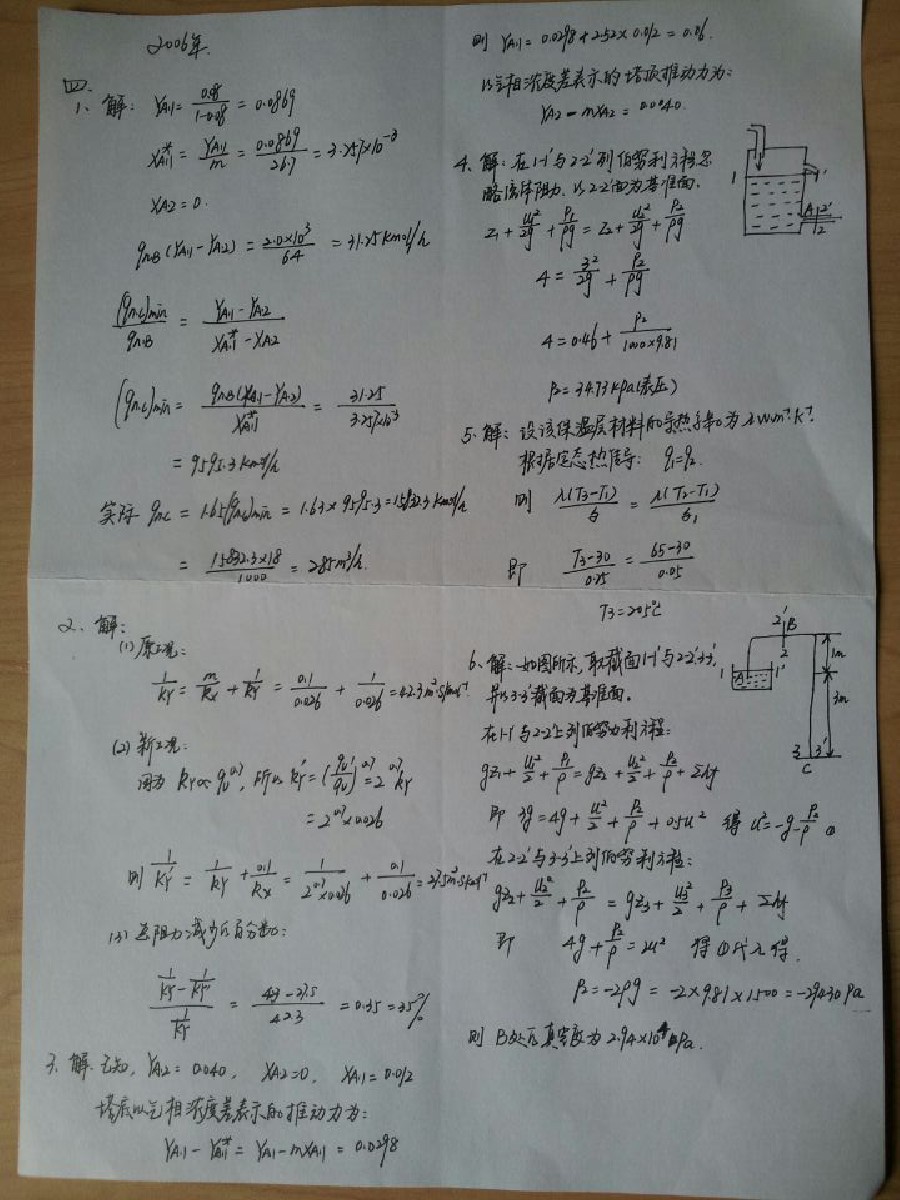 2006年.
四.
1、解: YA1 = 0.08/(1-0.08) = 0.0869
XA1* = YA1/m = 0.0869/26.7 = 3.257×10⁻³
XA2 = 0.
qnB(YA1-YA2) = 2.0×10³/64 = 31.25 kmol/h
(qnc)min/qnB = (YA1-YA2)/(XA1*-XA2)
(qnc)min = qnB(YA1-YA2)/XA1* = 31.25/3.257×10⁻³
= 9595.3 kmol/h
实际 qnc = 1.65(qnc)min = 1.65×9595.3 = 15832.3 kmol/h
= 15832.3×18/1000 = 285m³/h.
2、解:
(1) 原工况:
1/KY = m/kx + 1/kY = 0.1/0.026 + 1/0.026 = 42.3
(2) 新工况:
因为 kY∝qv^0.7, 所以 kY' = (qv'/qv)^0.7 = 2^0.7 kY
= 2^0.7×0.026
则 1/KY' = 1/kY' + 0.1/kx = 1/(2^0.7×0.026) + 0.1/0.026 = 27.5
(3) 总阻力减少的百分数:
(1/KY - 1/KY')/(1/KY) = (42.3-27.5)/42.3 = 0.35 = 35%
3、解: 已知, YA2 = 0.040, XA2=0, XA1=0.012
塔底以气相浓度差表示的推动力为:
YA1 - YA1* = YA1 - mXA1 = 0.0298
则 YA1 = 0.0298+2.52×0.012 = 0.06.
以气相浓度差表示的塔顶推动力为:
YA2 - mXA2 = 0.040.
4、解: 在1-1'与2-2'列伯努利方程忽
略流体阻力. 以2-2'面为基准面.
z1 + u1²/2g + P1/ρg = z2 + u2²/2g + P2/ρg
4 = 3²/2g + P2/ρg
4 = 0.46 + P2/(1000×9.81)
P2 = 34.73 kPa(表压)
1
1'
A
2'
2
5、解: 设该保温层材料的导热系数为λ W·m⁻¹·K⁻¹.
根据定态热传导: q1=q2.
则 λ(T3-T1)/δ = λ(T2-T1)/δ1
即 (T3-30)/0.25 = (65-30)/0.05
T3 = 205℃
6、解: 如图所示, 取截面1-1'与2-2',3-3',
并以3-3'截面为基准面.
在1-1'与2-2'上列伯努利方程:
gz1 + u1²/2 + P1/ρ = gz2 + u2²/2 + P2/ρ + Σhf
即 3g = 4g + u²/2 + P2/ρ + 0.5u² 得 u² = -g - P2/ρ ①
在2-2'与3-3'上列伯努利方程:
gz2 + u2²/2 + P2/ρ = gz3 + u3²/2 + P3/ρ + Σhf
即 4g + P2/ρ = 2u² 将①代入得.
P2 = -2ρg = -2×9.81×1500 = -29430 Pa
则 B处的真空度为 2.94×10⁴ Pa.
2'
B
2
1
A
1'
1m
3m
3
3'
C